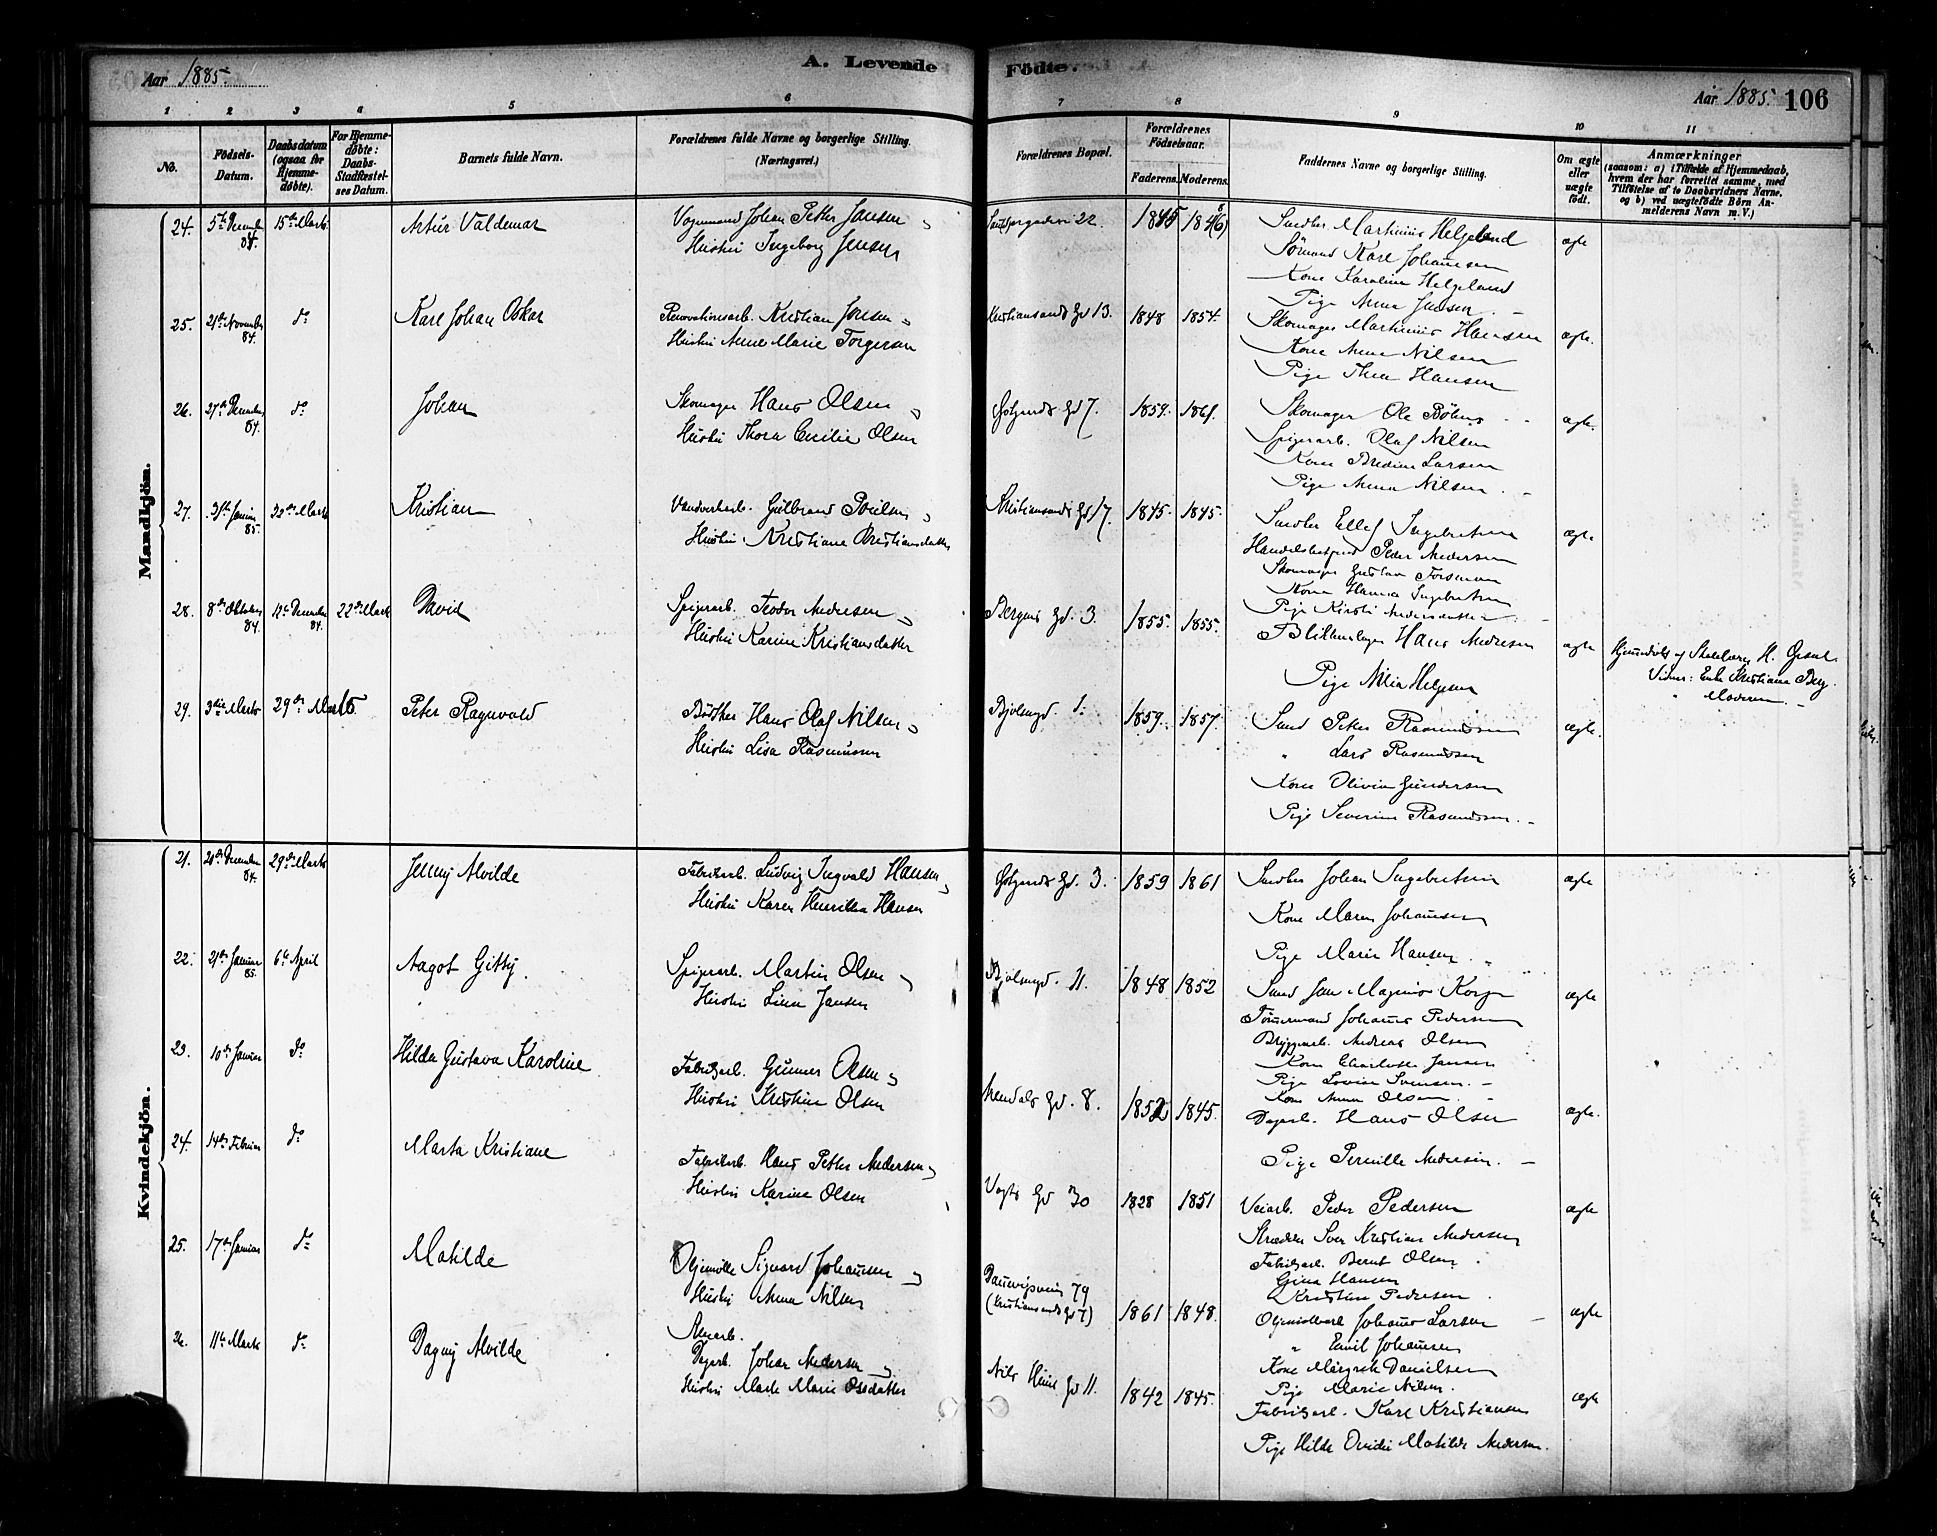 Aar 1885.
A. Levende
Födte.
Aar 1885. 106
1 2 3 4 5 6 7 8 9 10 11
No.
Födsels-Datum.
Daabsdatum (ogsaa for Hjemme-döbte).
For Hjemme-döbte: Daabs-Stadfæstelses Datum.
Barnets fulde Navn.
Forældrenes fulde Navne og borgerlige Stilling.
(Næringsvei.)
Forældrenes Bopæl.
Forældrenes Födselsaar.
Faderens. Moderens.
Faddernes Navne og borgerlige Stilling.
Om ægte eller uægte födt.
Anmærkninger
(saasom: a) i Tilfælde af Hjemmedaab, hvem der har forrettet samme, med Tilföielse af to Daabsvidners Navne, og b) ved uægtefödte Börn Anmelderens Navn m. V.)
Mandkjön.
24. 5te December 84. 15de Marts Artur Valdemar
Vognmand Johan Petter Jansen
Hustru Ingeborg Jensen
22. 1845 1846
Martinius Helgeland
Sömand Karl Johansen
Kone Karoline Helgeland
Pige Anna Jansen
ægte
25. 21de November 84. do Karl Johan Oskar
Renovationsarb. Kristian Jonsen
Hustru Anne Marie Torgersen
Kristiansands Gd 13. 1848 1854.
Skomager Martinius Hansen
Kone Anna Nilsen
Pige Thea Hansen
ægte.
26. 27de December 84. do Johan
Skomager Hans Olsen
Hustru Thora Cecilie Olsen
Gd 7. 1859. 1861.
Skomager Ole
Spigerarb. Olaf Nilsen
Kone Bredine Larsen
Pige Anna Nilsen.
ægte.
27. 31te Januar 85. 22de Marts Kristian
Gulbrand Poulsen
Hustru Kristiane Kristiansdatter
Kristiansands Gd 17. 1845. 1845.
Ellef Ingebretsen
Peder Andersen
Skomager Gustav Torsman
Kone Hanna Ingebretsen
Pige Kirsti Andersdatter
ægte
28. 8de Oktober 84. December 84. 22de Marts David
Spigerarb. Teodor Andersen
Hustru Karine Kristiansdatter
Bergens Gd. 3. 1855. 1855.
Blikkenslager Hans Andresen
Pige Helgesen
ægte
Hjemmedöbt af H.
Vidner: Enke Kristiane Berg.
" Moderen.
29. 3die Marts 29de Marts Peter Ragnvald
Bödker Hans Olaf Nilsen
Hustru Lisa Rasmussen
1. 1859. 1857.
Peter Rasmussen
" Lars Rasmussen
Kone Olivia Gundersen
Pige Severine Rasmussen.
ægte.
Kvindekjön.
21. December 84. 29de Marts Jenny Alvilde
Fabrikarb. Ludvig Ingvald Hansen
Hustru Karen Henrikka Hansen
Gd. 3. 1859 1861
Johan Ingebretsen
Kone Maren Johansen
Pige Marie Hansen.
ægte
22. 21de Januar 85. 6te April Aagot Gitty.
Spigerarb. Martin Olsen
Hustru Lina Jansen
11. 1848 1852
Magnus
Tömmermand Johannes Pedersen
Bryggearb. Andreas Olsen
Kone Charlotte Jansen
Pige Lovise Svensen.
Kone Anna Olsen.
ægte
23. 10de Januar do Hilda Gustava Karoline
Fabrikarb. Gunner Olsen
Hustru Kristine Olsen
Gd. 8. 1852 1845.
Dagarb. Hans Olsen
Pige Pernille Andersen.
ægte.
24. 14de Februar do Marta Kristiane
Fabrikarb. Hans Petter Andersen
Hustru Karine Olsen
Vogts Gd 30 1828 1851
Veiarb. Peder Pedersen
Skrædder Sven Kristian Andersen
Fabrikarb. Bernt Olsen.
Gina Hansen
Kristine Pedersen.
ægte
25. 17de Januar do Matilde
Oljemölle Sigvard Johansen
Hustru Anna Nilsen
79
(Kristiansands Gd 7) 1861 1848.
Johannes Larsen
" Emil Johansen
Kone Margrete Danielsen
Pige Marie Nilsen.
ægte
26. 11te Marts do Dagny Alvilde
Dagarb. Johan Andersen
Hustru Marte Marie Olsdatter
Nils Gd 11. 1842 1845.
Fabrikarb. Karl Kristiansen
Pige Hilde Matilde Andersen.
ægte